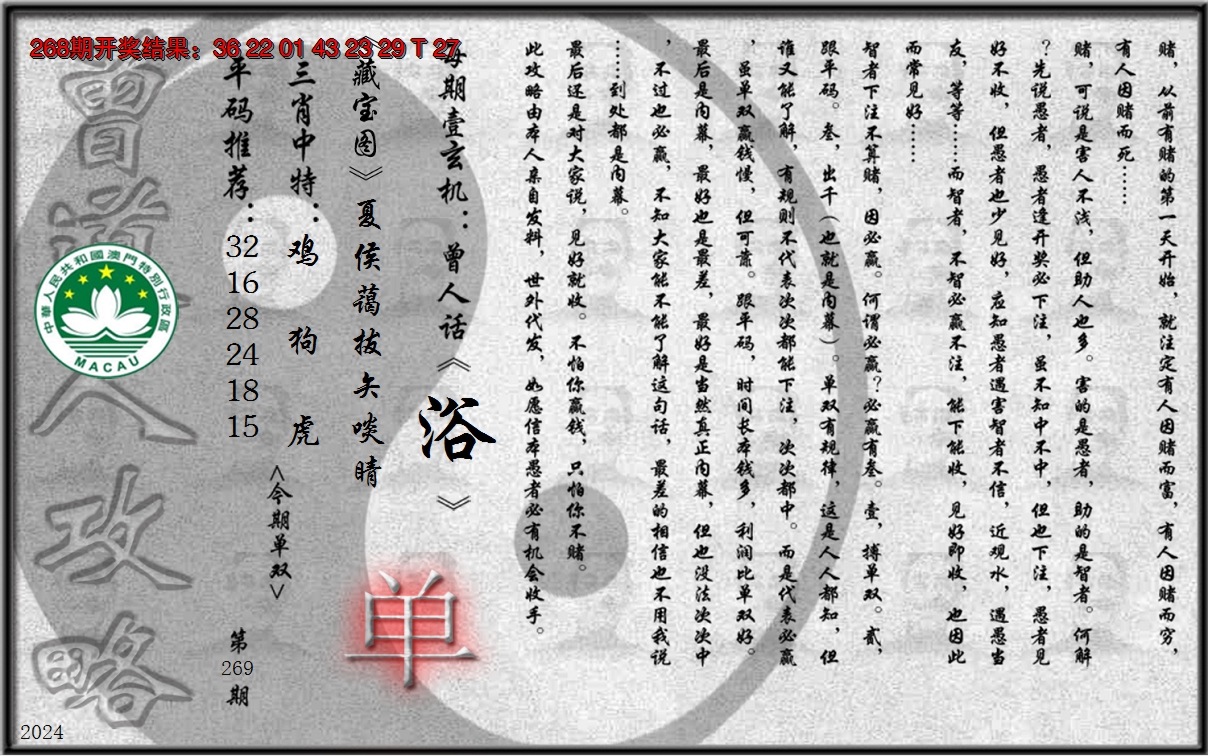 268期开奖结果：36 22 01 43 23 29 T 27
赌，从前有赌的第一天开始，就注定有人因赌而富，有人因赌而穷，
有人因赌而死……
赌，可说是害人不浅，但助人也多。害的是愚者，助的是智者。何解
？先说愚者，愚者逢开奖必下注，虽不知中不中，但也下注，愚者见
好不收，但愚者也少见好，应知愚者遇害智者不信，近观水，遇愚当
友，等等……而智者，不智必赢不注，能下能收，见好即收，也因此
而常见好……
智者下注不算赌，因必赢。何谓必赢？必赢有叁。壹，搏单双。贰，
跟平码。叁，出千（也就是内幕）。单双有规律，这是人人都知，但
谁又能了解，有规则不代表次次都能下注，次次都中。而是代表必赢
，虽单双赢钱慢，但可靠。跟平码，时间长本钱多，利润比单双好。
最后是内幕，最好也是最差，最好是当然真正内幕，但也没法次次中
，不过也必赢，不知大家能不能了解这句话，最差的相信也不用我说
……到处都是内幕。
最后还是对大家说，见好就收。不怕你赢钱，只怕你不赌。
此攻略由本人亲自发料，世外代发，如愿信本愚者必有机会收手。
每期壹玄机：曾人话《浴》
《藏宝图》夏侯蔼拔矢啖睛
三肖中特：鸡 狗 虎
平码推荐：32 16 28 24 18 15
<今期单双>
单
第269期
曾道人攻略
中華人民共和國澳門特別行政區
MACAU
2024